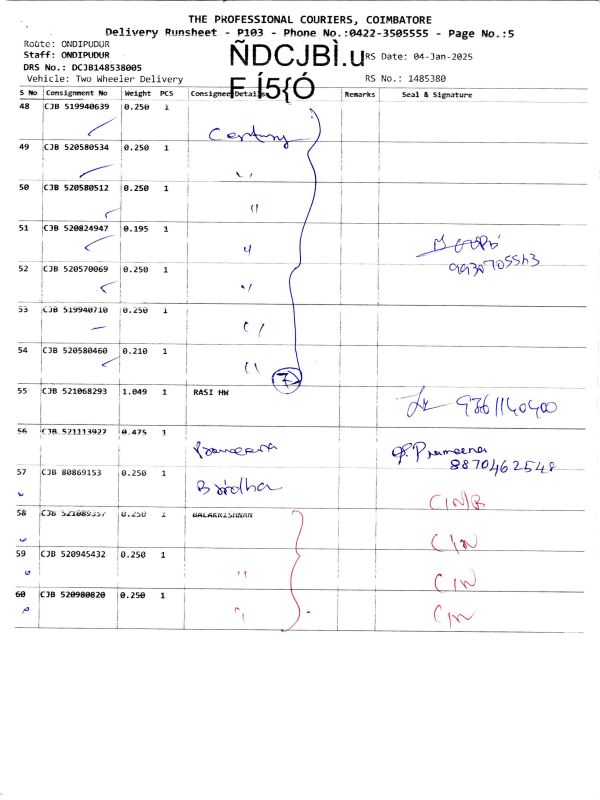 THE PROFESSIONAL COURIERS, COIMBATORE
Delivery Runsheet - P103 - Phone No.:0422-3505555 - Page No.:5
Route: ONDIPUDUR
Staff: ONDIPUDUR
DRS No.: DCJB148538005
Vehicle: Two Wheeler Delivery
ÑDCJBÌ.u
F Í5{Ó
RS Date: 04-Jan-2025
RS No.: 1485380
S No Consignment No Weight PCS Consignee Details Remarks Seal & Signature
48 CJB 519940639 0.250 1 Century
49 CJB 520580534 0.250 1 "
50 CJB 520580512 0.250 1 "
51 CJB 520824947 0.195 1 "
52 CJB 520570069 0.250 1 "
53 CJB 519940710 0.250 1 "
54 CJB 520580460 0.210 1 "
7
55 CJB 521068293 1.049 1 RASI HW 9361140400
56 CJB 521113927 0.475 1 Prameena
8870462548
57 CJB 80869153 0.250 1 C/N/B
58 CJB 521089357 0.250 1 BALAKRISHNAN C/N
59 CJB 520945432 0.250 1 " C/N
60 CJB 520980820 0.250 1 " C/N